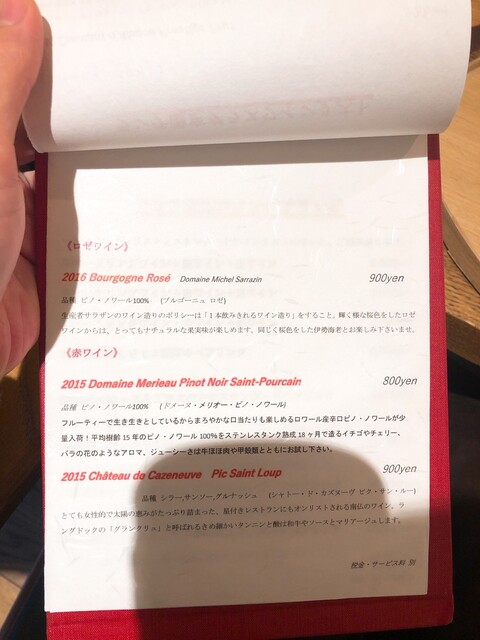 《ロゼワイン》
2016 Bourgogne Rosé Domaine Michel Sarrazin 900yen
品種 ピノ・ノワール100% (ブルゴーニュ ロゼ)
生産者サラザンのワイン造りのポリシーは「１本飲みきれるワイン造り」をすること。輝く様な桜色をしたロゼ
ワインからは、とってもナチュラルな果実味が楽しめます。同じく桜色をした伊勢海老とお楽しみ下さいませ。
《赤ワイン》
2015 Domaine Merieau Pinot Noir Saint-Pourcain 800yen
品種 ピノ・ノワール100% (ドメーヌ・メリオー・ピノ・ノワール)
フルーティーで生き生きとしているからまろやかな口当たりも楽しめるロワール産辛口ピノ・ノワールが少
量入荷！平均樹齢 15 年のピノ・ノワール 100%をステンレスタンク熟成 18 ヶ月で造るイチゴやチェリー、
バラの花のようなアロマ、ジューシーさは牛ほほ肉や甲殻類とともにお試し下さい。
2015 Château de Cazeneuve Pic Saint Loup 900yen
品種 シラー,サンソー,グルナッシュ (シャトー・ド・カズヌーヴ ピク・サン・ルー)
とても女性的で太陽の恵みがたっぷり詰まった、星付きレストランにもオンリストされる南仏のワイン。ラ
ングドックの「グランクリュ」と呼ばれるきめ細かいタンニンと酸は和牛やソースとマリアージュします。
税金・サービス料 別